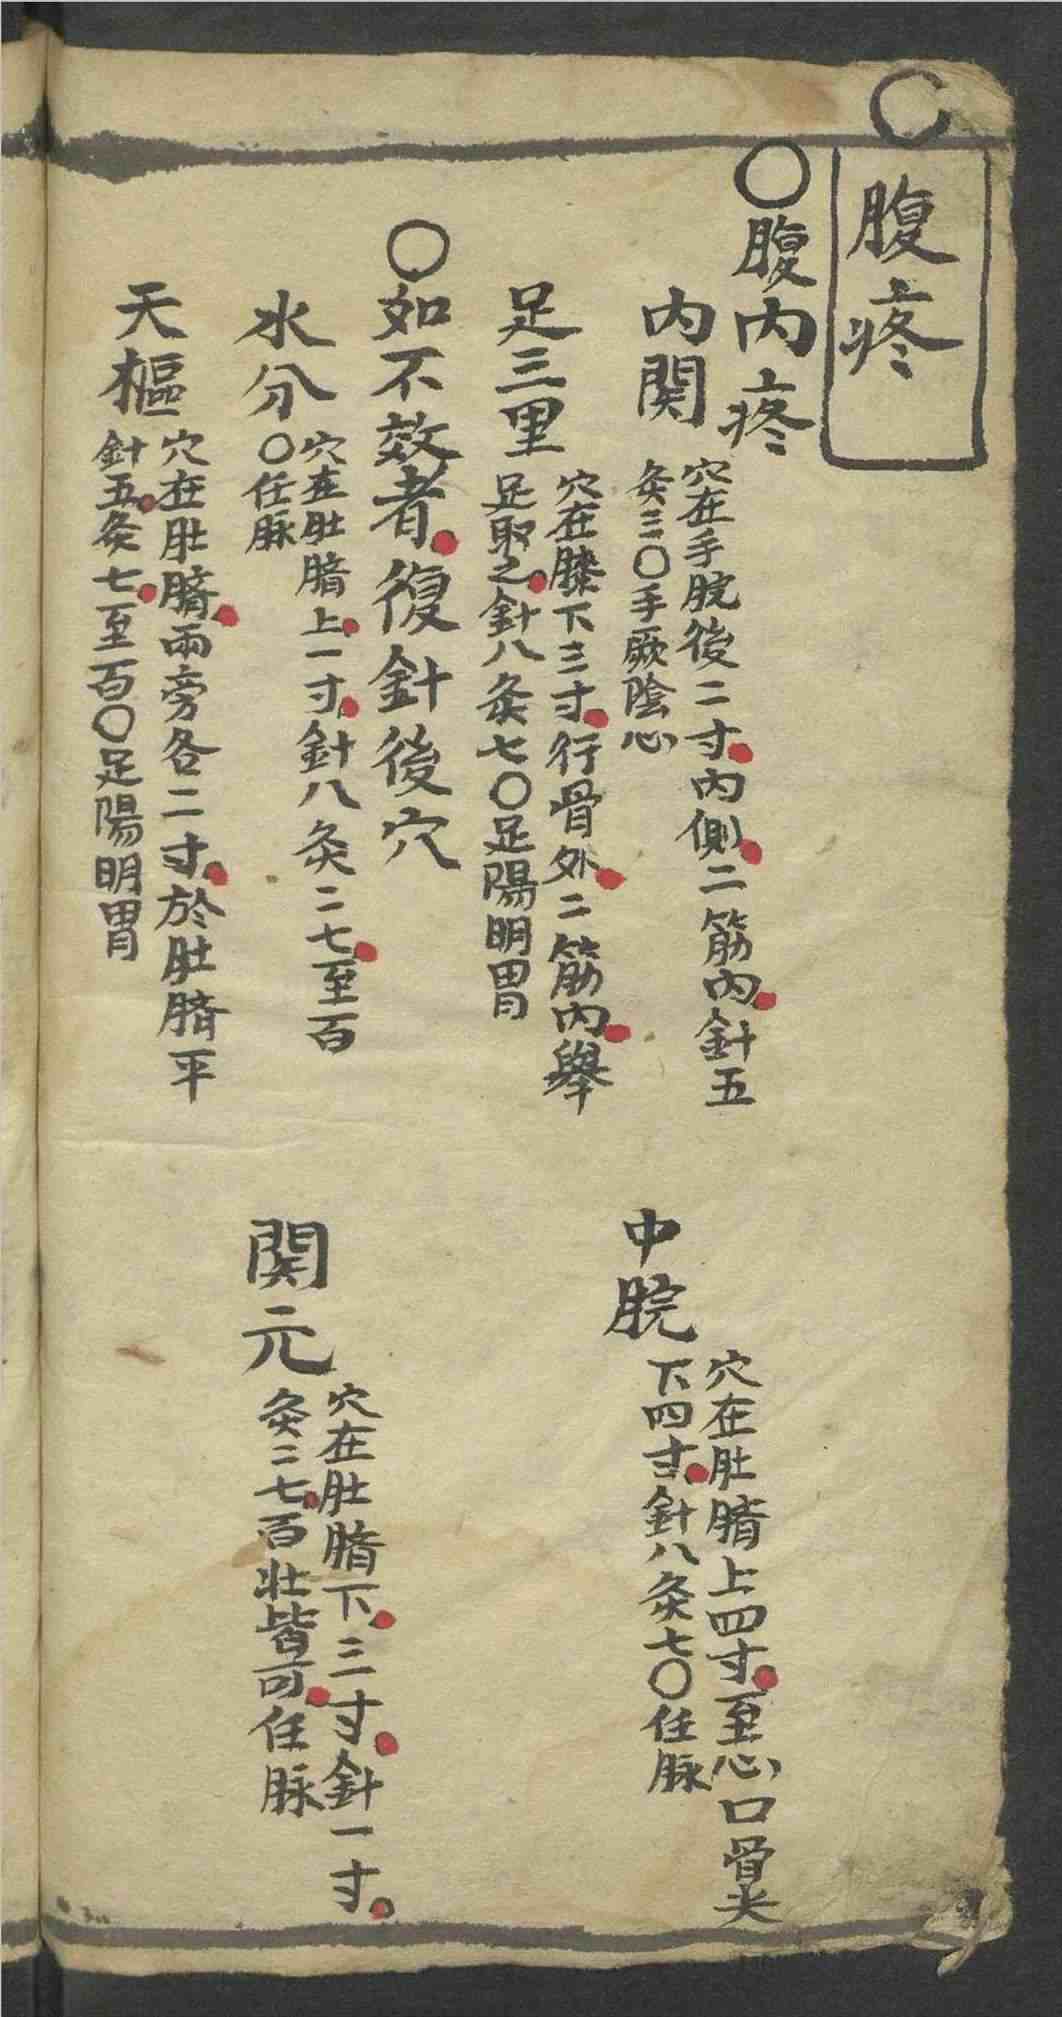 腹疼
〇腹內疼
內関
穴在手脘後二寸內側二筋內針五
灸三〇手厥陰心
中脘
穴在肚臍上四寸至心口骨尖
下四寸針八灸七〇任脉
足三里
穴在膝下三寸行骨外二筋內舉
足取之針八灸七〇足陽明胃
〇如不效者復針後穴
水分
穴在肚臍上一寸針八灸二七至百
〇任脉
関元
穴在肚臍下三寸針一寸
灸二七百壯皆可任脉
天樞
穴在肚臍兩旁各二寸於肚臍平
針五灸七至百〇足陽明胃